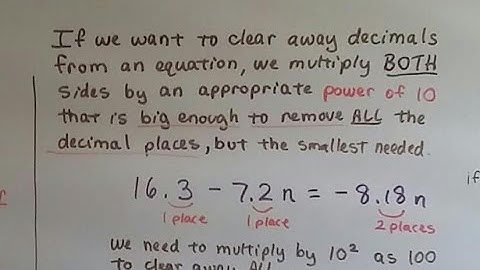 If we want to clear away decimals
from an equation, we multiply BOTH
sides by an appropriate power of 10
that is big enough to remove ALL the
decimal places, but the smallest needed.
16.3 - 7.2n = -8.18n
1 place 1 place 2 places
if
we need to multiply by 10² as 100
to clear away ALL